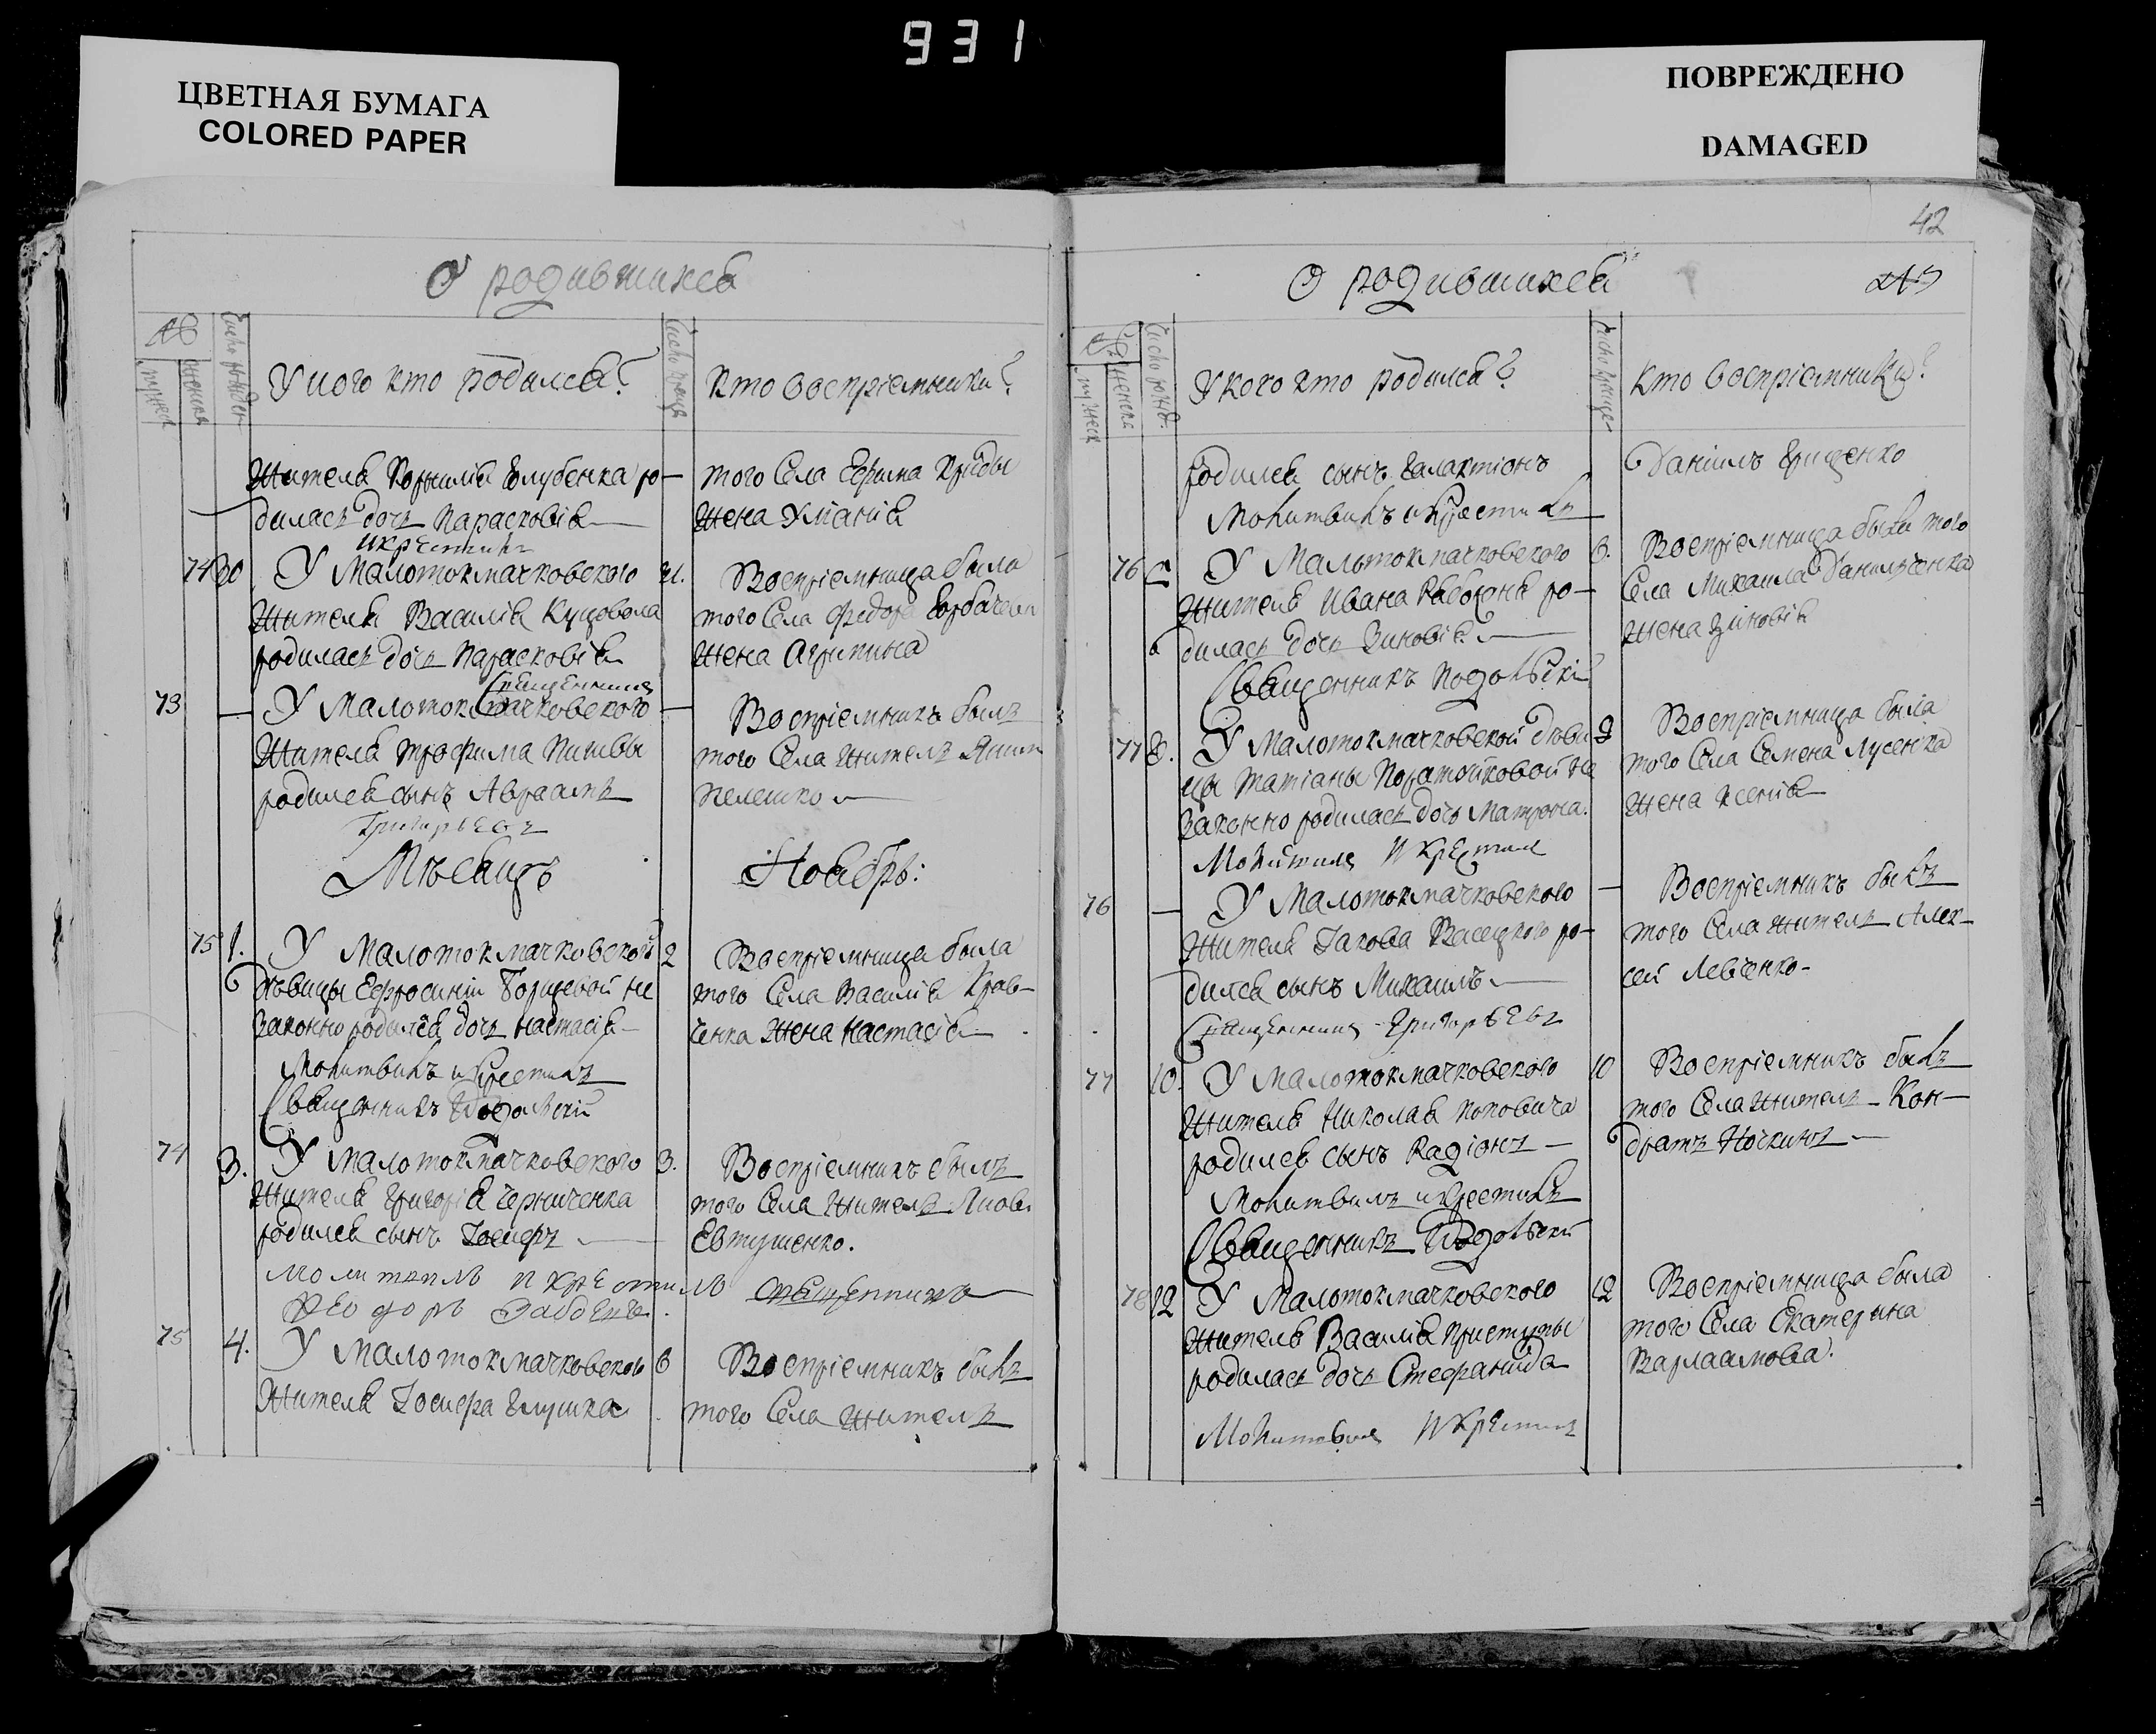 931
ЦВЕТНАЯ БУМАГА
COLORED PAPER
ПОВРЕЖДЕНО
DAMAGED
О родившихся
№
мужеск
женска
Число рожден
У кого кто родился?
Число крещ
Кто восприемники?
Жителя Корнилія Голубенка ро-
дилась дочь Парасковія
того Села Ефима
жена
и крестилъ
74 30 У Малотокмачковского 31.
жителя Василія Куцовола
родилась дочь Парасковія
Воспріемница была
того Села Федора Горбачева
жена Агрипина
Священникъ
73 — У Малотокмачковского —
жителя Трофима
родился сынъ Авраамъ
Григорьевъ
Воспріемникъ былъ
того Села житель
Мѣсяцъ Ноябрь:
75 1. У Малотокмачковской 2
дѣвицы Ефросиніи Борщевой не
законно родился дочь Настасія
Молитвилъ и крестилъ
Священникъ Подольскій
Воспріемница была
того Села Василія Крав-
ченка жена Настасія
74 3. У Малотокмачковского 3.
жителя Григорія Черниченка
родился сынъ Іосифъ
молитвилъ и крестилъ священникъ
Феодоръ
Воспріемникъ былъ
того Села житель Яковъ
Евтушенко.
75 4. У Малотокмачковского 6
жителя Іосифа Глушка
Воспріемникъ былъ
того Села житель
42
О родившихся
мужеск
женска
Число рожд.
У кого кто родился?
Число креще
Кто воспріемники?
родился сынъ Галактіонъ
Молитвилъ и крестилъ
Даніилъ Грищенко
76 5 У Малотокмачковского 6.
жителя Ивана ро-
дилась дочь Зиновія
Священникъ Подольскій
Воспріемница была того
Села Михаила Данильченка
жена Зиновія
77 8. У Малотокмачковской дѣви 8
цы Татіаны не
законно родилась дочь Матрона.
Молитвилъ и крестилъ
Воспріемница была
того Села Семена Лусенка
жена Ксенія
76 — У Малотокмачковского —
жителя Іакова Васецкого ро-
дился сынъ Михаилъ
Священникъ Григорьевъ
Воспріемникъ былъ
того Села житель Алек-
сей Левченко-
77 10. У Малотокмачковского 10
жителя Николая Поповича
родился сынъ Радіонъ
Молитвилъ и крестилъ
Священникъ Подольскій
Воспріемникъ былъ
того Села житель Кон-
дратъ Носкинъ
78 12 У Малотокмачковского 12
жителя Василія Приступы
родилась дочь Стефанида
Молитвилъ и крестилъ
Воспріемница была
того Села Екатерина
Варлаамова.